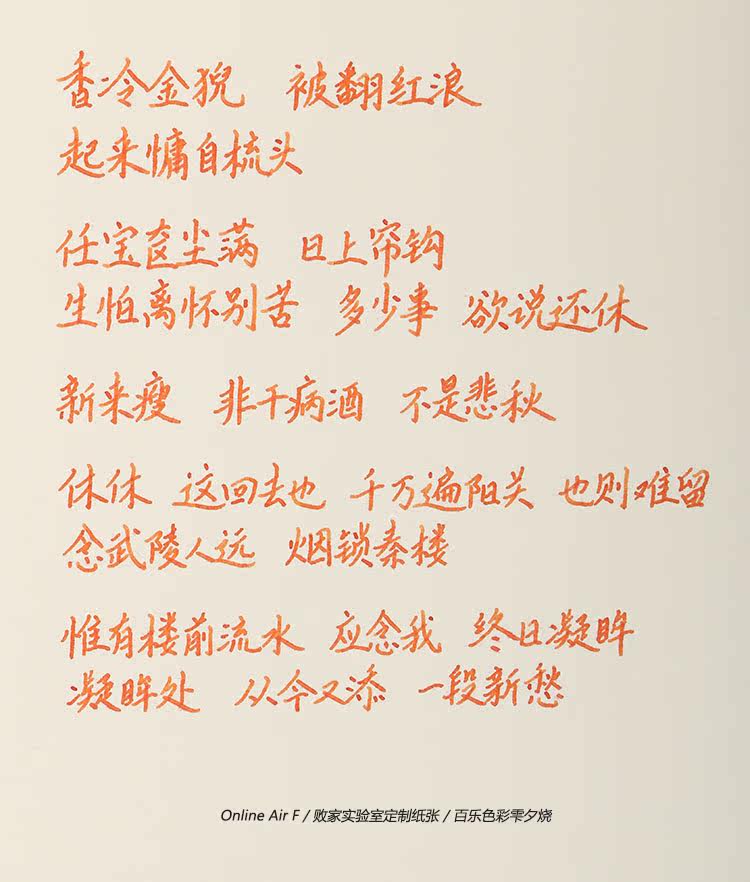 香冷金猊 被翻红浪
起来慵自梳头
任宝奁尘满 日上帘钩
生怕离怀别苦 多少事 欲说还休
新来瘦 非干病酒 不是悲秋
休休 这回去也 千万遍阳关 也则难留
念武陵人远 烟锁秦楼
惟有楼前流水 应念我 终日凝眸
凝眸处 从今又添 一段新愁
Online Air F / 败家实验室定制纸张 / 百乐色彩雫夕烧